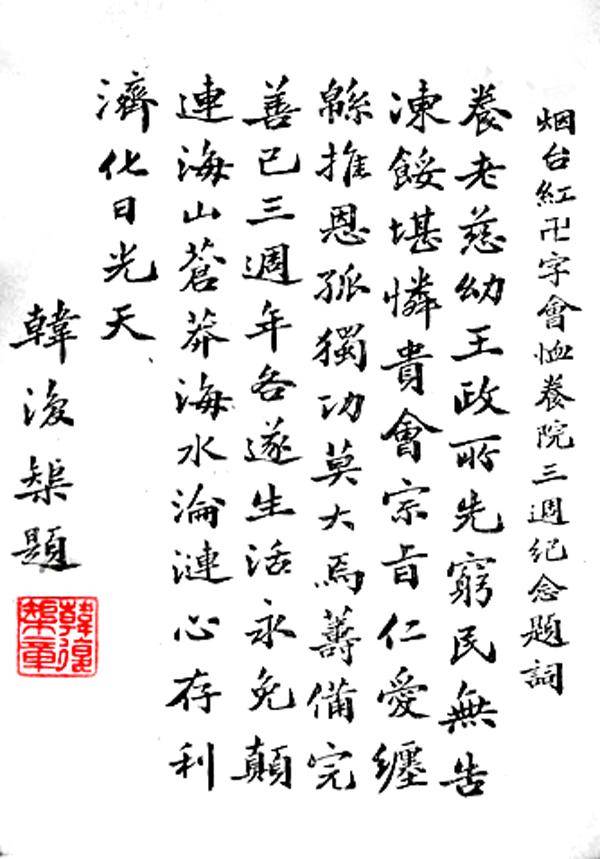 烟台紅卍字會恤養院三週紀念題詞
養老慈幼王政所先窮民無告
凍餒堪憐貴會宗旨仁愛纏
緜推恩孤獨功莫大焉籌備完
善已三週年各遂生活永免顛
連海山蒼莽海水淪漣心存利
濟化日光天
韓復榘題
韓復榘章